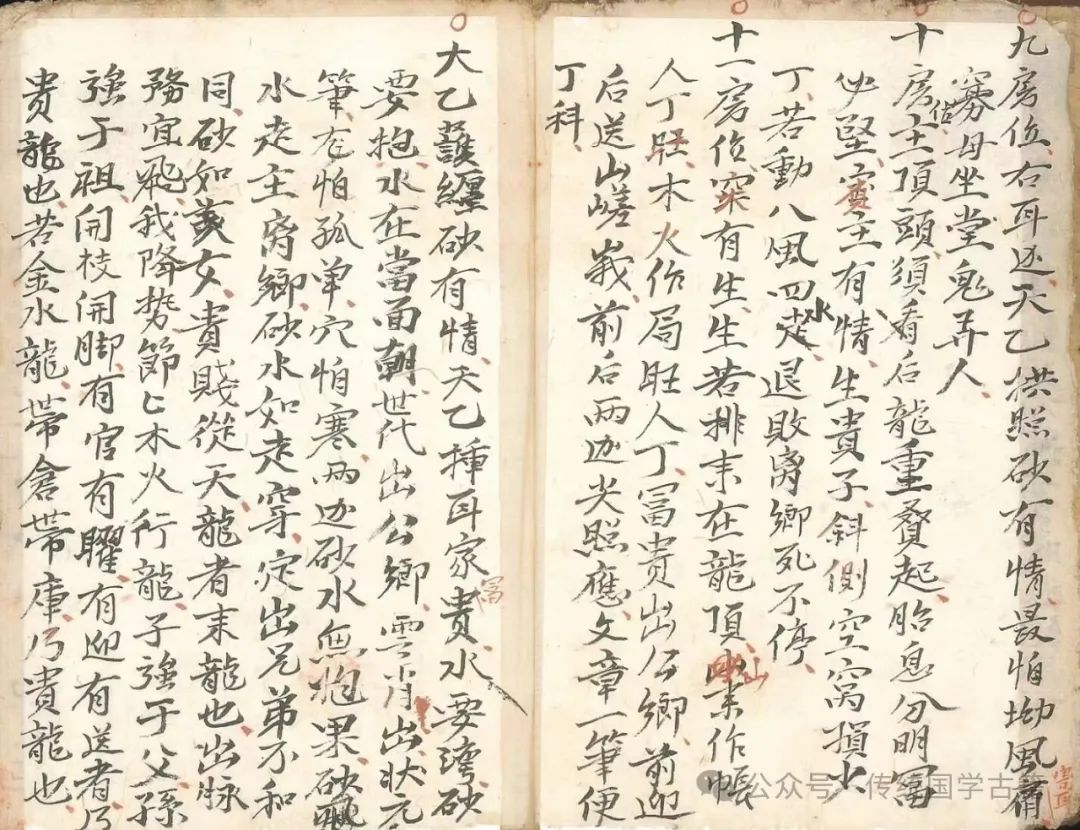 九房位右耳边天乙拱照砂有情最怕坳風 害耳
寡母坐堂鬼弄人
十房位主頂頭須看后龍重叠起胎息分明富
必堅賓主有情生貴子斜側空窩損火
丁若動八風四水走退敗离鄉死不停
十一房位窠有生生若排来在龍頂山来作帳
人丁旺木火作局旺人丁冨贵出公鄉前迎
后送山嵯峩前后兩边尖照應文章一筆便
丁科
大乙護纏砂有情天乙挿耳家富贵水要灣砂
要抱水在當面朝世代出公鄉雲肖出状元
筆在怕孤单穴怕寒兩边砂水無抱果砂飛
水走主离鄉砂水如走穿定出兄弟不和
同砂如美女貴賤從天龍者来龍也出脉
務宜飛我降势節匕木火行龍子強于父孫
強于祖開枝開脚有官有曜有迎有送者乃
贵龍也若金水龍帶倉帶庫乃貴龍也
公众号 传统国学古籍